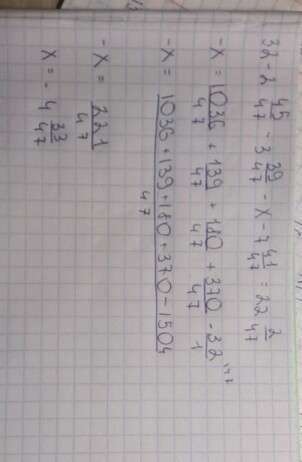 32 - 2 45/47 - 3 39/47 - x - 7 41/47 = 22 2/47
-x = 1036/47 + 139/47 + 180/47 + 370/47 - 32/1 \47
-x = (1036+139+180+370-1504)/47
-x = 221/47
x = -4 33/47